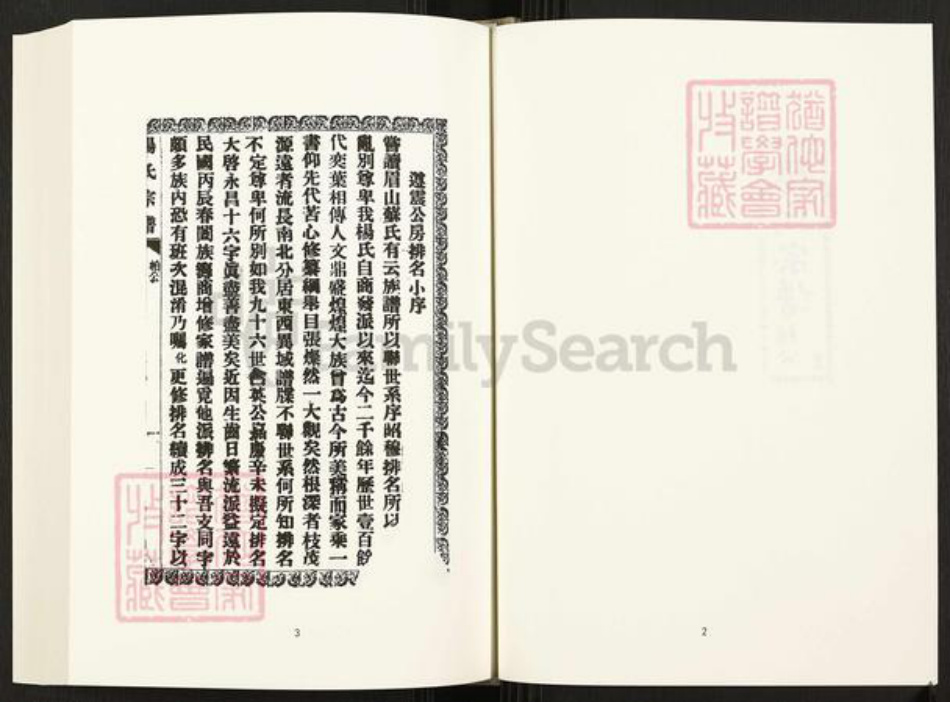 遵震公房排名小序
嘗讀眉山蘇氏有云族譜所以聯世系序昭穆排名所以
亂別尊卑我楊氏自商發派以來迄今二千餘年歷世壹百餘
代奕葉相傳人文鼎盛煌煌大族曾爲古今所美稱而家乘一
書仰先代苦心修纂綱舉目張燦然一大觀矣然根深者枝茂
源遠者流長南北分居東西異域譜牒不聯世系何所知排名
不定尊卑何所別如我九十六世含英公嘉慶辛未擬定排名
大啓永昌十六字眞盡善盡美矣近因生齒日繁流派益遠於
民國丙辰春闔族海商增修家譜遍覓他派排名與吾支同字
頗多族內恐有班次混淆乃囑化更修排名續成三十二字以
楊氏宗譜
一
3
猶他家譜學會收藏
2
FamilySearch